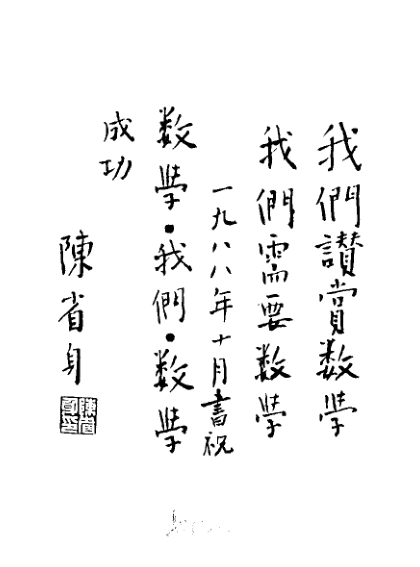 我們讚賞数學
我們需要数學
一九八八年十月書祝
数學·我們·数學
成功
陳省身